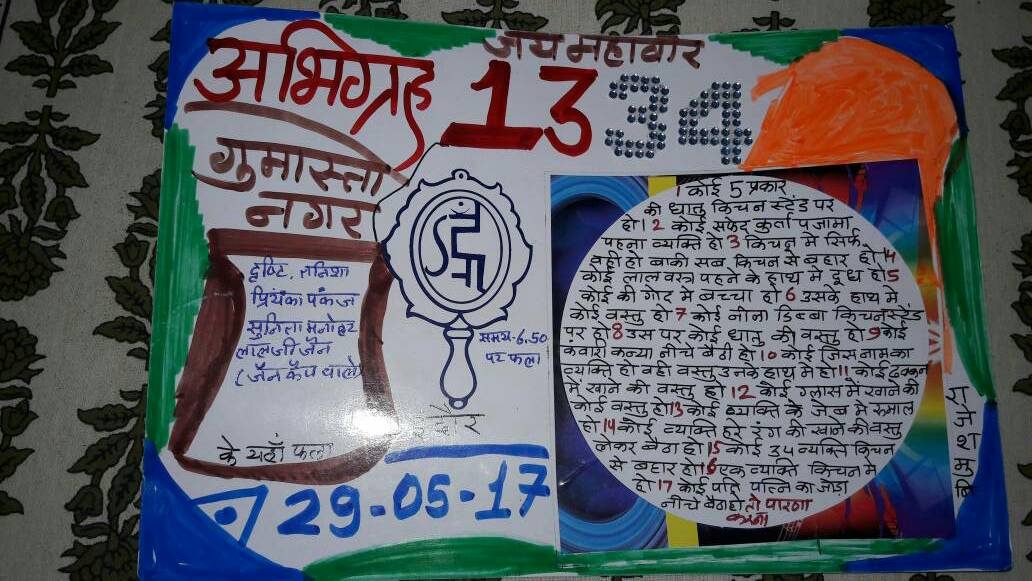 जय महावीर
अभिग्रह 13 34
गुमास्ता
नगर
द्रष्टि, तनिशा
प्रियंका पंकज
सुनिता मनोहर
लालजी जैन
(जैन कैप वाले)
के यहाँ फला
समय-6.50
पर फला
इन्दौर
29-05-17
1 कोई 5 प्रकार
की धातु किचन स्टेंड पर
हो। 2 कोई सफेद कुर्ता पजामा
पहना व्यक्ति हो 3 किचन में सिर्फ
वही हो बाकी सब किचन से बहार हो 4
कोई लाल वस्त्र पहने के हाथ में दूध हो 5
कोई की गोर में बच्चा हो 6 उसके हाथ में
कोई वस्तु हो 7 कोई नीला डिब्बा किचन स्टेंड
पर हो 8 उस पर कोई धातु की वस्तु हो 9 कोई
कवारी कन्या नीचे बैठी हो 10 कोई जिस नाम का
व्यक्ति हो वही वस्तु उनके हाथ में हो 11 कोई ढक्कन
में खाने की वस्तु हो 12 कोई ग्लास में खाने की
कोई वस्तु हो 13 कोई व्यक्ति के जेब में रुमाल
हो 14 कोई व्यक्ति हरे रंग की खाने की वस्तु
लेकर बैठा हो 15 कोई 34 व्यक्ति किचन
से बहार हो 16 एक व्यक्ति किचन में
हो 17 कोई पति पत्नि का जोडा
नीचे बैठा हो तो पारणा
करना